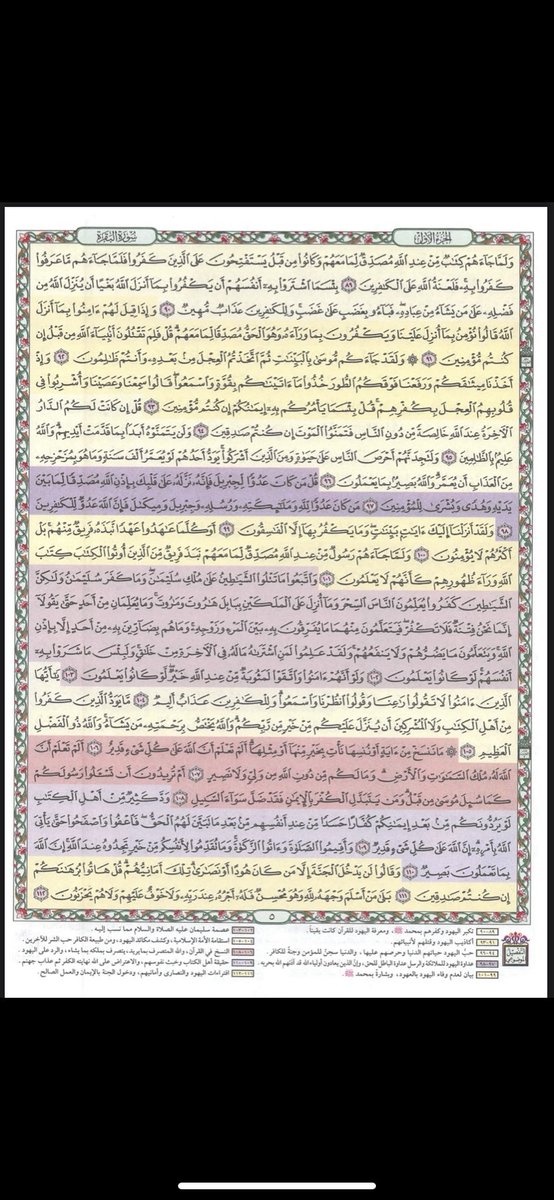 الجزء الأول
سورة البقرة
وَلَمَّا جَآءَهُمْ كِتَٰبٌ مِّنْ عِندِ ٱللَّهِ مُصَدِّقٌ لِّمَا مَعَهُمْ وَكَانُوا۟ مِن قَبْلُ يَسْتَفْتِحُونَ عَلَى ٱلَّذِينَ كَفَرُوا۟ فَلَمَّا جَآءَهُم مَّا عَرَفُوا۟
كَفَرُوا۟ بِهِۦ فَلَعْنَةُ ٱللَّهِ عَلَى ٱلْكَٰفِرِينَ ٨٩ بِئْسَمَا ٱشْتَرَوْا۟ بِهِۦٓ أَنفُسَهُمْ أَن يَكْفُرُوا۟ بِمَآ أَنزَلَ ٱللَّهُ بَغْيًا أَن يُنَزِّلَ ٱللَّهُ مِن
فَضْلِهِۦ عَلَىٰ مَن يَشَآءُ مِنْ عِبَادِهِۦ فَبَآءُو بِغَضَبٍ عَلَىٰ غَضَبٍ وَلِلْكَٰفِرِينَ عَذَابٌ مُّهِينٌ ٩٠ وَإِذَا قِيلَ لَهُمْ ءَامِنُوا۟ بِمَآ أَنزَلَ
ٱللَّهُ قَالُوا۟ نُؤْمِنُ بِمَآ أُنزِلَ عَلَيْنَا وَيَكْفُرُونَ بِمَا وَرَآءَهُۥ وَهُوَ ٱلْحَقُّ مُصَدِّقًا لِّمَا مَعَهُمْ قُلْ فَلِمَ تَقْتُلُونَ أَنۢبِيَآءَ ٱللَّهِ مِن قَبْلُ إِن
كُنتُم مُّؤْمِنِينَ ٩١ ۞ وَلَقَدْ جَآءَكُم مُّوسَىٰ بِٱلْبَيِّنَٰتِ ثُمَّ ٱتَّخَذْتُمُ ٱلْعِجْلَ مِنۢ بَعْدِهِۦ وَأَنتُمْ ظَٰلِمُونَ ٩٢ وَإِذْ
أَخَذْنَا مِيثَٰقَكُمْ وَرَفَعْنَا فَوْقَكُمُ ٱلطُّورَ خُذُوا۟ مَآ ءَاتَيْنَٰكُم بِقُوَّةٍ وَٱسْمَعُوا۟ قَالُوا۟ سَمِعْنَا وَعَصَيْنَا وَأُشْرِبُوا۟ فِى
قُلُوبِهِمُ ٱلْعِجْلَ بِكُفْرِهِمْ قُلْ بِئْسَمَا يَأْمُرُكُم بِهِۦٓ إِيمَٰنُكُمْ إِن كُنتُم مُّؤْمِنِينَ ٩٣ قُلْ إِن كَانَتْ لَكُمُ ٱلدَّارُ
ٱلْءَاخِرَةُ عِندَ ٱللَّهِ خَالِصَةً مِّن دُونِ ٱلنَّاسِ فَتَمَنَّوُا۟ ٱلْمَوْتَ إِن كُنتُمْ صَٰدِقِينَ ٩٤ وَلَن يَتَمَنَّوْهُ أَبَدًۢا بِمَا قَدَّمَتْ أَيْدِيهِمْ وَٱللَّهُ
عَلِيمٌۢ بِٱلظَّٰلِمِينَ ٩٥ وَلَتَجِدَنَّهُمْ أَحْرَصَ ٱلنَّاسِ عَلَىٰ حَيَوٰةٍ وَمِنَ ٱلَّذِينَ أَشْرَكُوا۟ يَوَدُّ أَحَدُهُمْ لَوْ يُعَمَّرُ أَلْفَ سَنَةٍ وَمَا هُوَ بِمُزَحْزِحِهِۦ
مِنَ ٱلْعَذَابِ أَن يُعَمَّرَ وَٱللَّهُ بَصِيرٌۢ بِمَا يَعْمَلُونَ ٩٦ قُلْ مَن كَانَ عَدُوًّا لِّجِبْرِيلَ فَإِنَّهُۥ نَزَّلَهُۥ عَلَىٰ قَلْبِكَ بِإِذْنِ ٱللَّهِ مُصَدِّقًا لِّمَا بَيْنَ
يَدَيْهِ وَهُدًى وَبُشْرَىٰ لِلْمُؤْمِنِينَ ٩٧ مَن كَانَ عَدُوًّا لِّلَّهِ وَمَلَٰٓئِكَتِهِۦ وَرُسُلِهِۦ وَجِبْرِيلَ وَمِيكَىٰلَ فَإِنَّ ٱللَّهَ عَدُوٌّ لِّلْكَٰفِرِينَ
٩٨ وَلَقَدْ أَنزَلْنَآ إِلَيْكَ ءَايَٰتٍۭ بَيِّنَٰتٍ وَمَا يَكْفُرُ بِهَآ إِلَّا ٱلْفَٰسِقُونَ ٩٩ أَوَكُلَّمَا عَٰهَدُوا۟ عَهْدًا نَّبَذَهُۥ فَرِيقٌ مِّنْهُم بَلْ
أَكْثَرُهُمْ لَا يُؤْمِنُونَ ١٠٠ وَلَمَّا جَآءَهُمْ رَسُولٌ مِّنْ عِندِ ٱللَّهِ مُصَدِّقٌ لِّمَا مَعَهُمْ نَبَذَ فَرِيقٌ مِّنَ ٱلَّذِينَ أُوتُوا۟ ٱلْكِتَٰبَ كِتَٰبَ
ٱللَّهِ وَرَآءَ ظُهُورِهِمْ كَأَنَّهُمْ لَا يَعْلَمُونَ ١٠١ وَٱتَّبَعُوا۟ مَا تَتْلُوا۟ ٱلشَّيَٰطِينُ عَلَىٰ مُلْكِ سُلَيْمَٰنَ وَمَا كَفَرَ سُلَيْمَٰنُ وَلَٰكِنَّ
ٱلشَّيَٰطِينَ كَفَرُوا۟ يُعَلِّمُونَ ٱلنَّاسَ ٱلسِّحْرَ وَمَآ أُنزِلَ عَلَى ٱلْمَلَكَيْنِ بِبَابِلَ هَٰرُوتَ وَمَٰرُوتَ وَمَا يُعَلِّمَانِ مِنْ أَحَدٍ حَتَّىٰ يَقُولَآ
إِنَّمَا نَحْنُ فِتْنَةٌ فَلَا تَكْفُرْ فَيَتَعَلَّمُونَ مِنْهُمَا مَا يُفَرِّقُونَ بِهِۦ بَيْنَ ٱلْمَرْءِ وَزَوْجِهِۦ وَمَا هُم بِضَآرِّينَ بِهِۦ مِنْ أَحَدٍ إِلَّا بِإِذْنِ
ٱللَّهِ وَيَتَعَلَّمُونَ مَا يَضُرُّهُمْ وَلَا يَنفَعُهُمْ وَلَقَدْ عَلِمُوا۟ لَمَنِ ٱشْتَرَىٰهُ مَا لَهُۥ فِى ٱلْءَاخِرَةِ مِنْ خَلَٰقٍ وَلَبِئْسَ مَا شَرَوْا۟ بِهِۦٓ
أَنفُسَهُمْ لَوْ كَانُوا۟ يَعْلَمُونَ ١٠٢ وَلَوْ أَنَّهُمْ ءَامَنُوا۟ وَٱتَّقَوْا۟ لَمَثُوبَةٌ مِّنْ عِندِ ٱللَّهِ خَيْرٌ لَّوْ كَانُوا۟ يَعْلَمُونَ ١٠٣ يَٰٓأَيُّهَا
ٱلَّذِينَ ءَامَنُوا۟ لَا تَقُولُوا۟ رَٰعِنَا وَقُولُوا۟ ٱنظُرْنَا وَٱسْمَعُوا۟ وَلِلْكَٰفِرِينَ عَذَابٌ أَلِيمٌ ١٠٤ مَّا يَوَدُّ ٱلَّذِينَ كَفَرُوا۟
مِنْ أَهْلِ ٱلْكِتَٰبِ وَلَا ٱلْمُشْرِكِينَ أَن يُنَزَّلَ عَلَيْكُم مِّنْ خَيْرٍ مِّن رَّبِّكُمْ وَٱللَّهُ يَخْتَصُّ بِرَحْمَتِهِۦ مَن يَشَآءُ وَٱللَّهُ ذُو ٱلْفَضْلِ
ٱلْعَظِيمِ ١٠٥ ۞ مَا نَنسَخْ مِنْ ءَايَةٍ أَوْ نُنسِهَا نَأْتِ بِخَيْرٍ مِّنْهَآ أَوْ مِثْلِهَآ أَلَمْ تَعْلَمْ أَنَّ ٱللَّهَ عَلَىٰ كُلِّ شَىْءٍ قَدِيرٌ ١٠٦ أَلَمْ تَعْلَمْ أَنَّ
ٱللَّهَ لَهُۥ مُلْكُ ٱلسَّمَٰوَٰتِ وَٱلْأَرْضِ وَمَا لَكُم مِّن دُونِ ٱللَّهِ مِن وَلِىٍّ وَلَا نَصِيرٍ ١٠٧ أَمْ تُرِيدُونَ أَن تَسْـَٔلُوا۟ رَسُولَكُمْ
كَمَا سُئِلَ مُوسَىٰ مِن قَبْلُ وَمَن يَتَبَدَّلِ ٱلْكُفْرَ بِٱلْإِيمَٰنِ فَقَدْ ضَلَّ سَوَآءَ ٱلسَّبِيلِ ١٠٨ وَدَّ كَثِيرٌ مِّنْ أَهْلِ ٱلْكِتَٰبِ
لَوْ يَرُدُّونَكُم مِّنۢ بَعْدِ إِيمَٰنِكُمْ كُفَّارًا حَسَدًا مِّنْ عِندِ أَنفُسِهِم مِّنۢ بَعْدِ مَا تَبَيَّنَ لَهُمُ ٱلْحَقُّ فَٱعْفُوا۟ وَٱصْفَحُوا۟ حَتَّىٰ يَأْتِىَ
ٱللَّهُ بِأَمْرِهِۦٓ إِنَّ ٱللَّهَ عَلَىٰ كُلِّ شَىْءٍ قَدِيرٌ ١٠٩ وَأَقِيمُوا۟ ٱلصَّلَوٰةَ وَءَاتُوا۟ ٱلزَّكَوٰةَ وَمَا تُقَدِّمُوا۟ لِأَنفُسِكُم مِّنْ خَيْرٍ تَجِدُوهُ عِندَ ٱللَّهِ إِنَّ ٱللَّهَ
بِمَا تَعْمَلُونَ بَصِيرٌ ١١٠ وَقَالُوا۟ لَن يَدْخُلَ ٱلْجَنَّةَ إِلَّا مَن كَانَ هُودًا أَوْ نَصَٰرَىٰ تِلْكَ أَمَانِيُّهُمْ قُلْ هَاتُوا۟ بُرْهَٰنَكُمْ
إِن كُنتُمْ صَٰدِقِينَ ١١١ بَلَىٰ مَنْ أَسْلَمَ وَجْهَهُۥ لِلَّهِ وَهُوَ مُحْسِنٌ فَلَهُۥٓ أَجْرُهُۥ عِندَ رَبِّهِۦ وَلَا خَوْفٌ عَلَيْهِمْ وَلَا هُمْ يَحْزَنُونَ ١١٢
٥
٨٩-٩٠ تكبر اليهود وكفرهم بمحمد ﷺ، ومعرفة اليهود للقرآن كانت يقيناً.
٩١-٩٣ أكاذيب اليهود وقتلهم لأنبيائهم.
٩٤-٩٦ حبّ اليهود حياتهم الدنيا وحرصهم عليها، والدنيا سجنٌ للمؤمن وجنةٌ للكافر.
٩٧-٩٨ عداوة اليهود للملائكة والرسل عداوة الباطل للحق، وإنّ الذين يعادون أولياء الله قد آذنهم الله بحربه.
٩٩-١٠١ بيان لعدم وفاء اليهود بالعهود، وبشارة بمحمد ﷺ.
١٠٢-١٠٣ عصمة سليمان عليه الصلاة والسلام مما نسب إليه.
١٠٤-١٠٥ استقامة الأمة الإسلامية، وكشف مكائد اليهود، ومن طبيعة الكافر حب الشر للآخرين.
١٠٦-١٠٨ النسخ في القرآن، والله المتصرف بما يريد، يتصرف بملكه بما يشاء، والرد على اليهود.
١٠٩-١١٠ حقيقة أهل الكتاب وخبث نفوسهم، والاعتراض على الله نهايته الكفر ثم عذاب جهنم.
١١١-١١٢ افتراءات اليهود والنصارى وأمانيهم، ودخول الجنة بالإيمان والعمل الصالح.